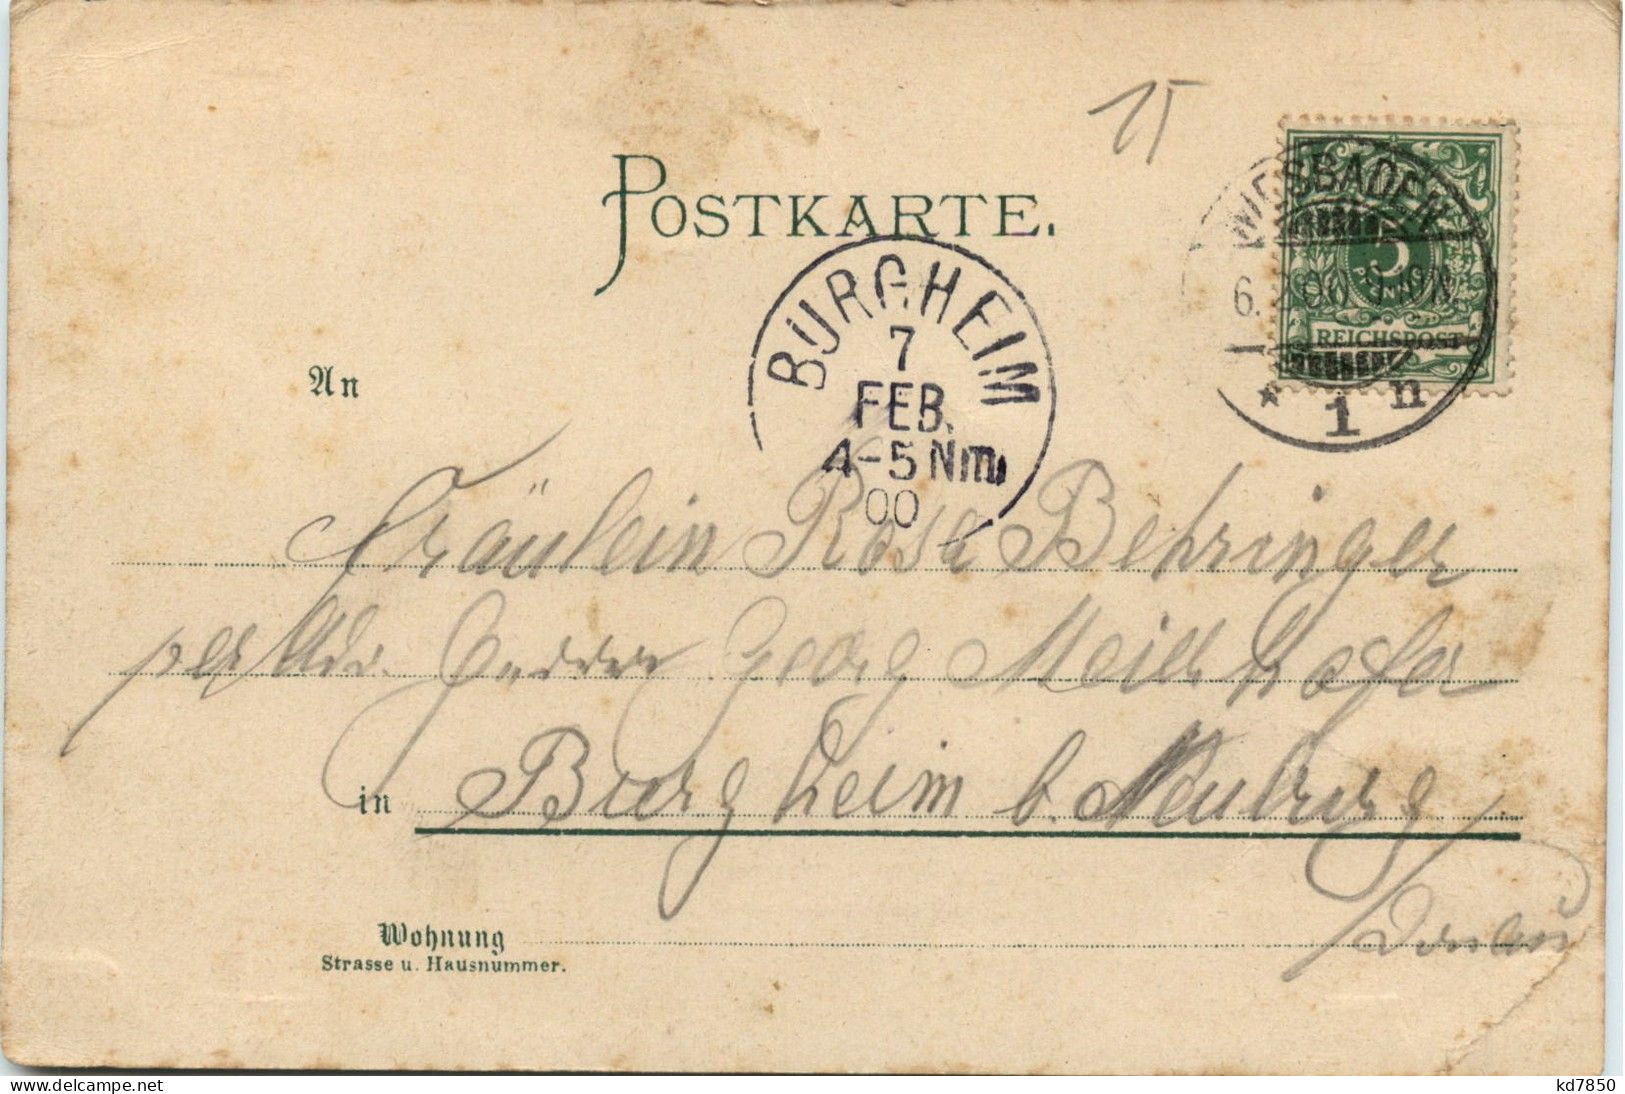 15
POSTKARTE.
WIESBADEN
6. 2 00 9-10N
* 1 n
5
PFENNIG
REICHSPOST
BURGHEIM
7
FEB.
4-5 Nm.
00
An
Fräulein Rosa Behringer
per Adr. Georg
in Burgheim b. Neuburg
Donau
Wohnung
Strasse u. Hausnummer.
kd7850